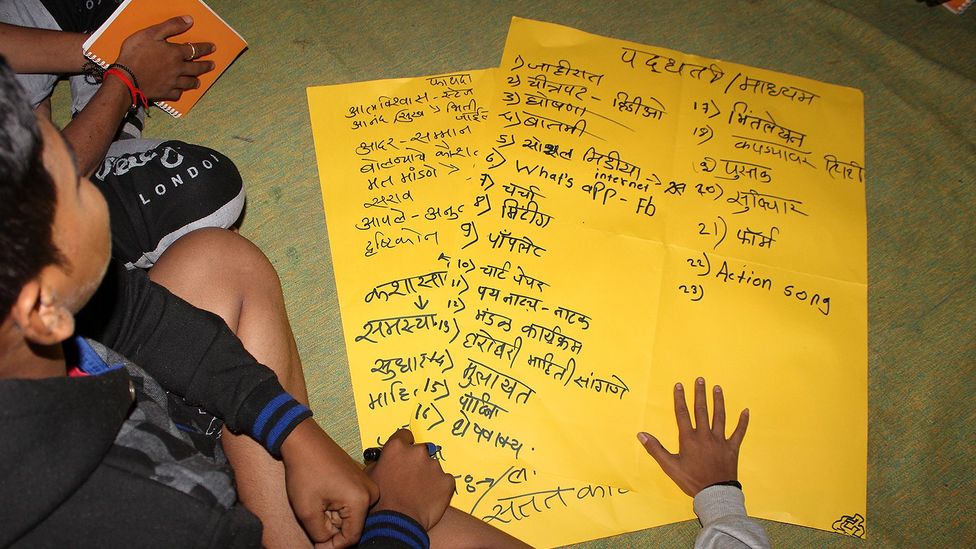 पद्धती/माध्यम
1) जाहीरात
2) चीत्रपट - व्हिडीओ
3) घोषणा
4) बातमी
5) सोशल मिडीया → internet
6) What's app - Fb
7) चर्चा
8) मिटींग
9) पाँपलेट
10) चार्ट पेपर
11) पथनाट्य - नाटक
12) मंडळ कार्यक्रम
13) घरोघरी माहिती सांगणे
मुलाखत
16) घोषवाक्य.
17) भिंतलेखन
कपड्यावर
पुस्तक
20) सुविचार
21) फॉर्म
22) Action song
23)
फायदा
आत्मविश्वास - स्टेज
आनंद सुख → भिती जाईल
आदर - सम्मान
बोलण्याचे कौश
मत मांडणे →
सराव
आपले - अनुभ
दृष्टिकोन
कशासा
समस्या
सुधा
माहि
सतत का
LONDON